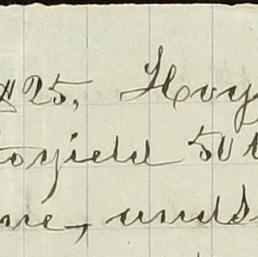 $25, Hoy
toyield 50
me, unds